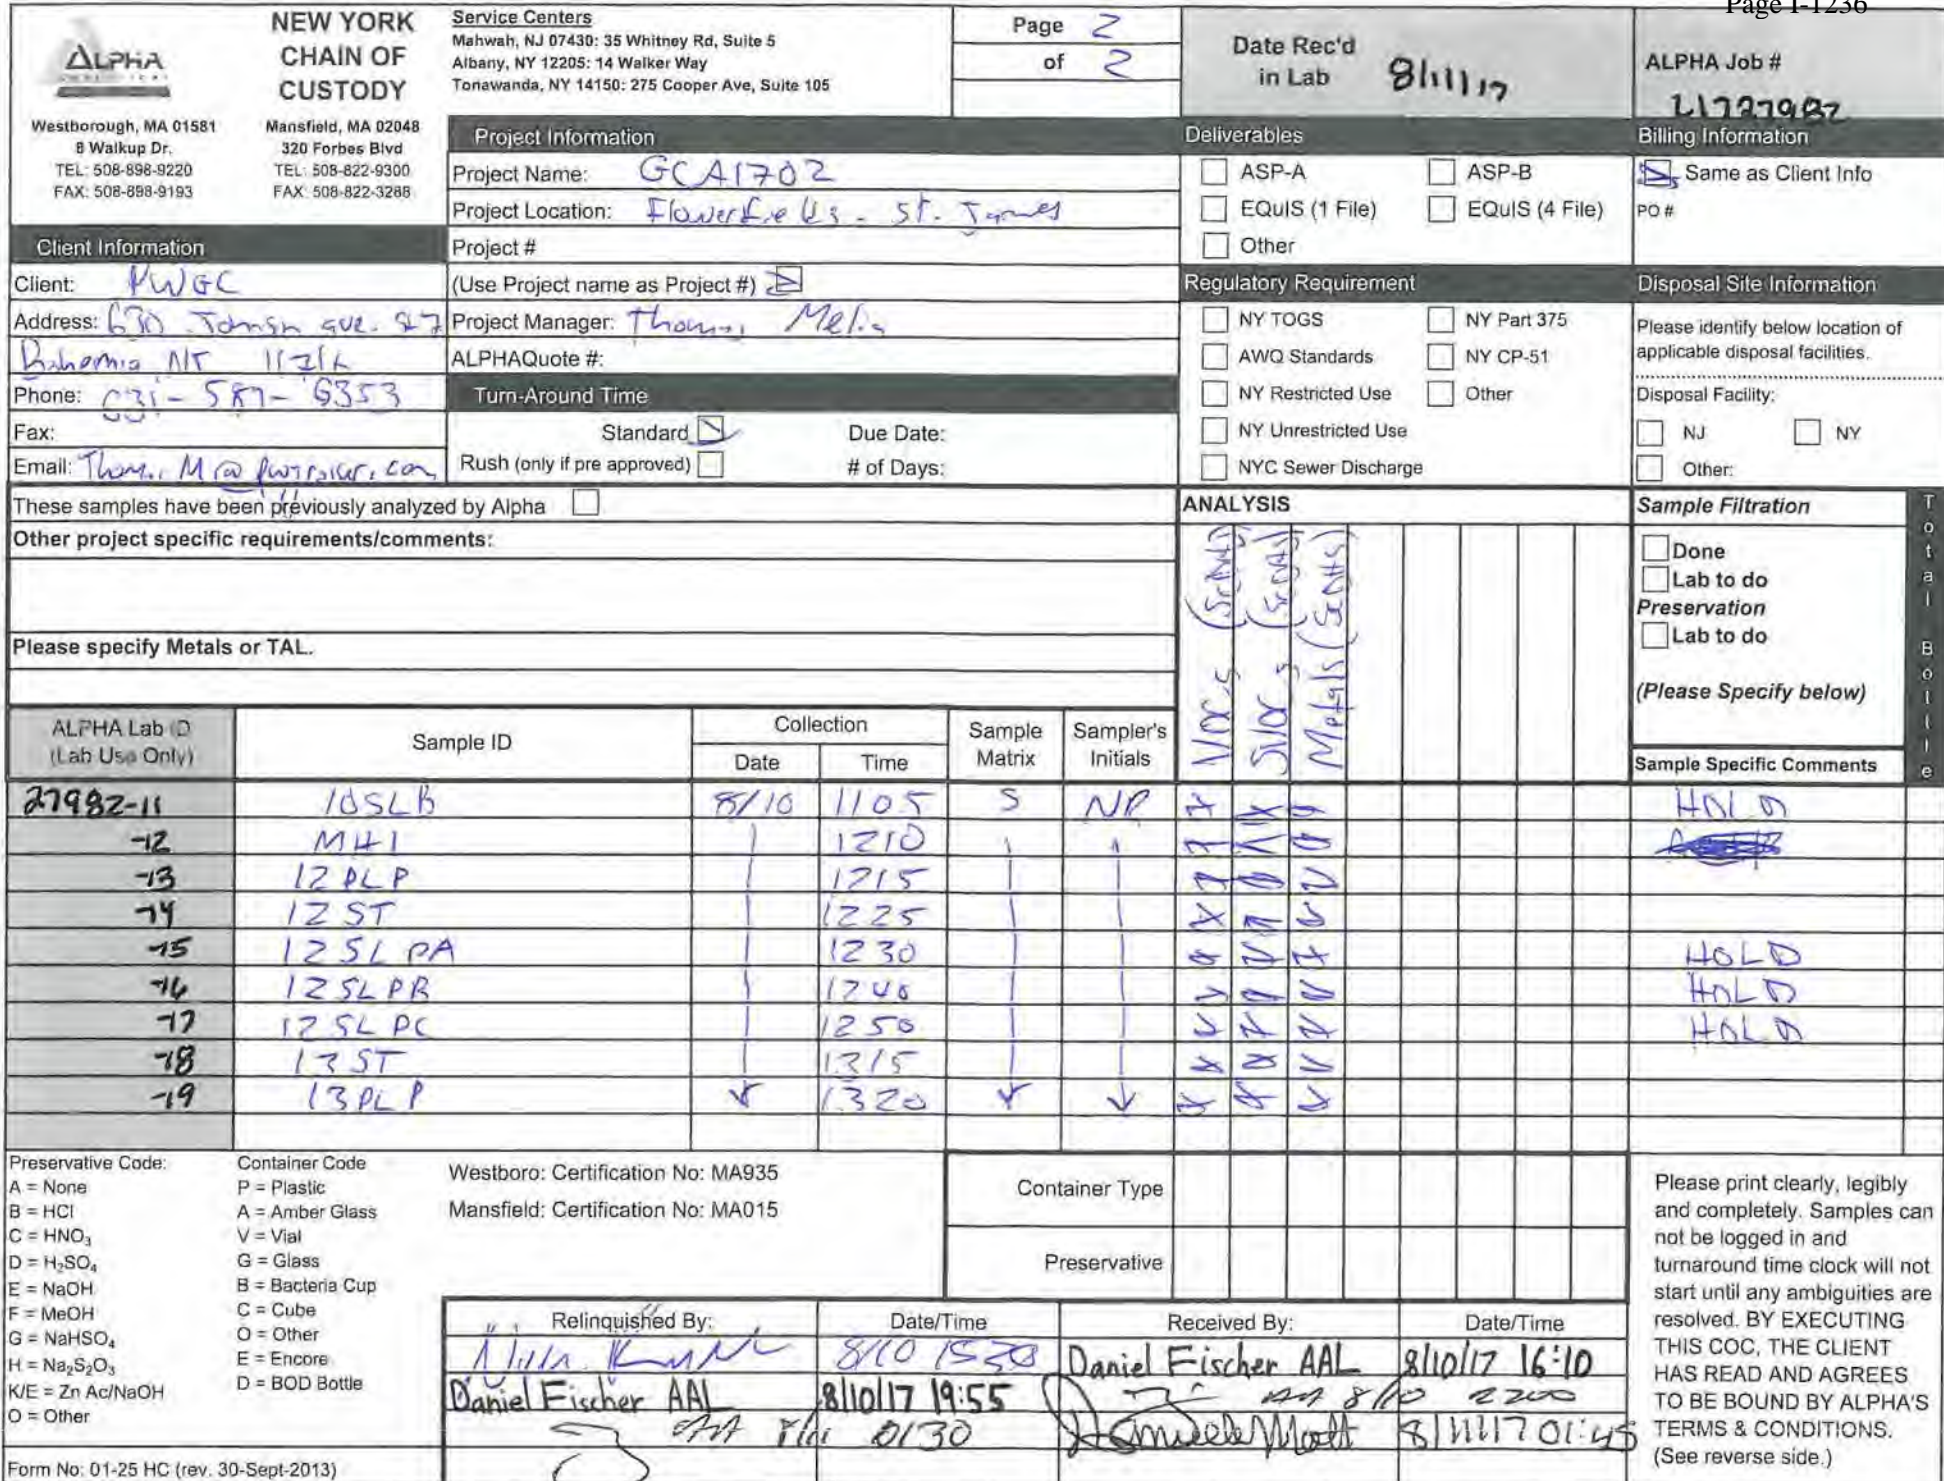 Page I-1236
ALPHA
NEW YORK
CHAIN OF
CUSTODY
Westborough, MA 01581
8 Walkup Dr.
TEL: 508-898-9220
FAX: 508-898-9193
Mansfield, MA 02048
320 Forbes Blvd
TEL: 508-822-9300
FAX: 508-822-3288
Service Centers
Mahwah, NJ 07430: 35 Whitney Rd, Suite 5
Albany, NY 12205: 14 Walker Way
Tonawanda, NY 14150: 275 Cooper Ave, Suite 105
Page 2
of 2
Date Rec'd
in Lab 8/11/17
ALPHA Job #
L1727982
Project Information
Project Name: GCA1702
Project Location: Flowerfields - St. James
Project #
(Use Project name as Project #)
Project Manager: Thomas Melia
ALPHAQuote #:
Turn-Around Time
Standard Due Date:
Rush (only if pre approved) # of Days:
Client Information
Client: PWGC
Address: 630 Johnson ave. 
Bohemia NY
Phone: 631-589-6353
Fax:
Email:
Deliverables
ASP-A ASP-B
EQuIS (1 File) EQuIS (4 File)
Other
Regulatory Requirement
NY TOGS NY Part 375
AWQ Standards NY CP-51
NY Restricted Use Other
NY Unrestricted Use
NYC Sewer Discharge
Billing Information
Same as Client Info
PO #
Disposal Site Information
Please identify below location of
applicable disposal facilities.
Disposal Facility:
NJ NY
Other:
These samples have been previously analyzed by Alpha
Other project specific requirements/comments:
Please specify Metals or TAL.
ANALYSIS
VOCs (SCDHS)
SVOCs (SCDHS)
Metals (SCDHS)
Sample Filtration
Done
Lab to do
Preservation
Lab to do
(Please Specify below)
Total Bottle
ALPHA Lab ID
(Lab Use Only)
Sample ID
Collection
Date Time
Sample
Matrix
Sampler's
Initials
Sample Specific Comments
27982-11 10SLB 8/10 1105 S NP HOLD
-12 MH1 1210
-13 12 PLP 1215
-14 12 ST 1225
-15 12 SL PA 1230 HOLD
-16 12 SL PB 1240 HOLD
-17 12 SL PC 1250 HOLD
-18 13 ST 1315
-19 13 PLP 1320
Preservative Code:
A = None
B = HCl
C = HNO₃
D = H₂SO₄
E = NaOH
F = MeOH
G = NaHSO₄
H = Na₂S₂O₃
K/E = Zn Ac/NaOH
O = Other
Container Code
P = Plastic
A = Amber Glass
V = Vial
G = Glass
B = Bacteria Cup
C = Cube
O = Other
E = Encore
D = BOD Bottle
Westboro: Certification No: MA935
Mansfield: Certification No: MA015
Container Type
Preservative
Relinquished By: Date/Time Received By: Date/Time
8/10 1530 Daniel Fischer AAL 8/10/17 16:10
Daniel Fischer AAL 8/10/17 19:55 8/10 2200
0130 8/11/17 01:45
Please print clearly, legibly
and completely. Samples can
not be logged in and
turnaround time clock will not
start until any ambiguities are
resolved. BY EXECUTING
THIS COC, THE CLIENT
HAS READ AND AGREES
TO BE BOUND BY ALPHA'S
TERMS & CONDITIONS.
(See reverse side.)
Form No: 01-25 HC (rev. 30-Sept-2013)